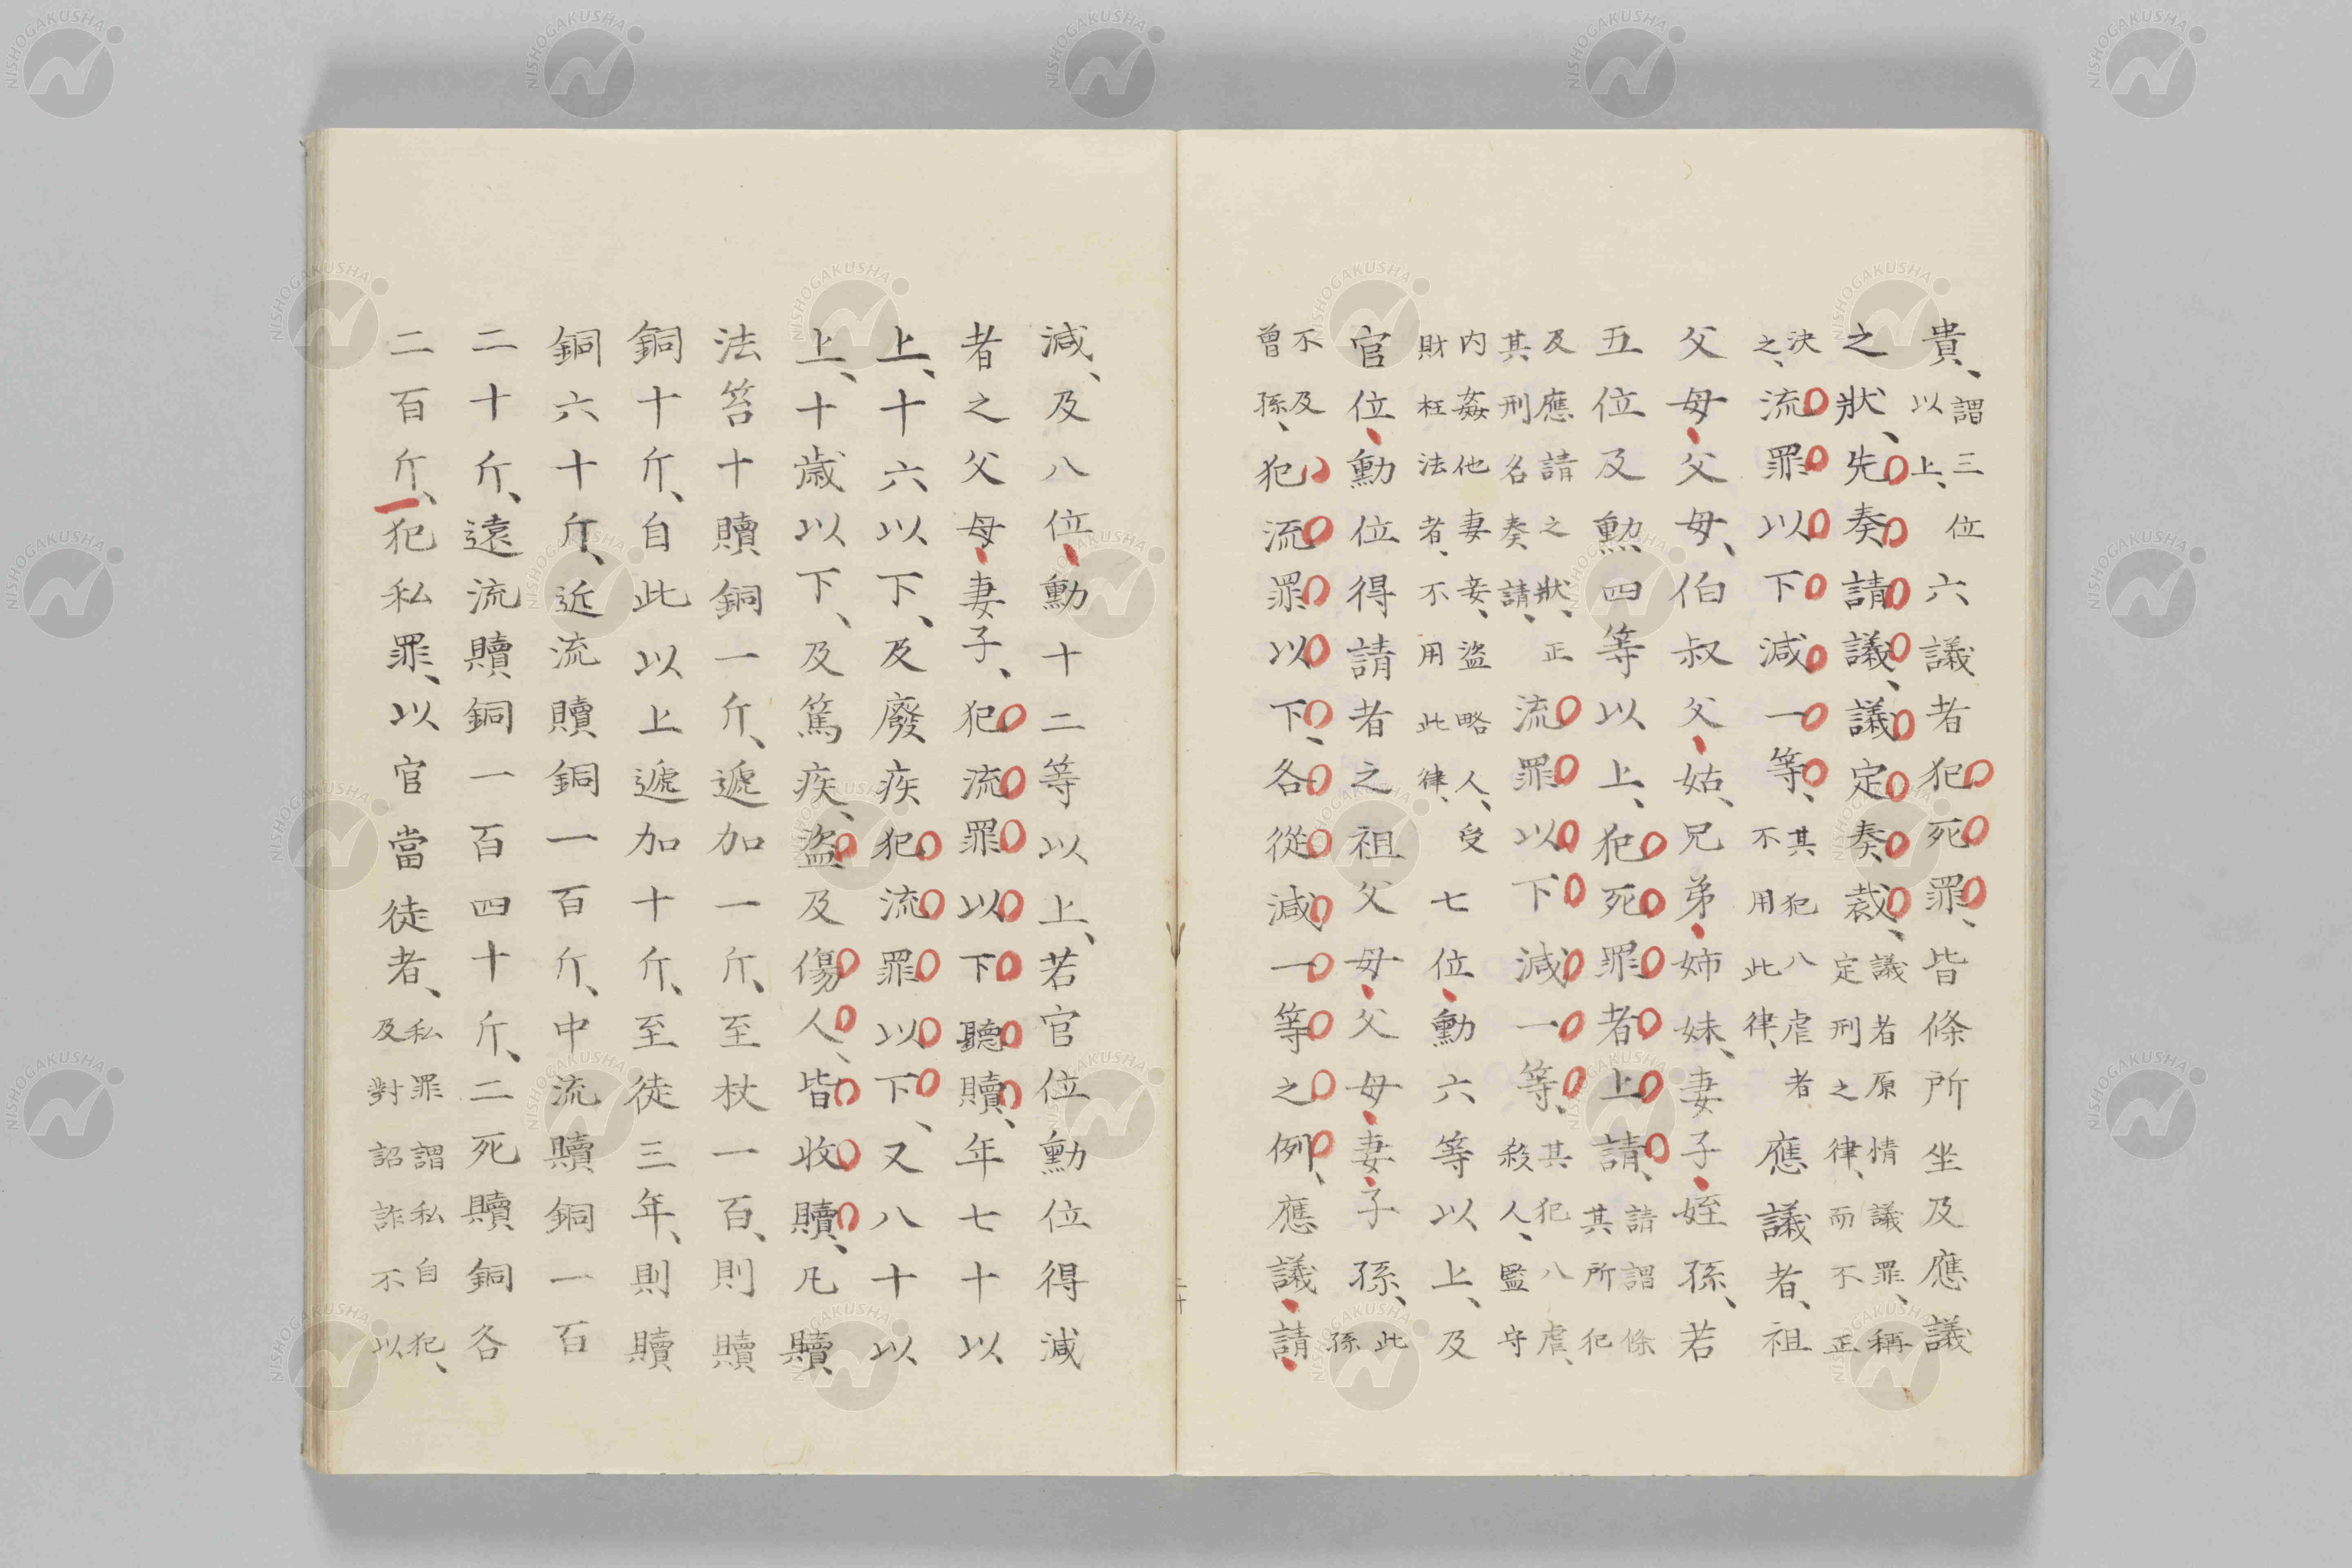 貴、謂三位以上、六議者犯死罪、皆條所坐及應議
之狀、先奏請議、議定奏裁、議者原情議罪、稱定刑之律、而不正
決之、流罪以下減一等、其犯八虐者不用此律、應議者、祖
父母、父母、伯叔父、姑、兄弟、姉妹、妻子、姪孫、若
五位及勲四等以上、犯死罪者上請、請謂條其所犯
及應請之狀、正其刑名奏請、流罪以下減一等、其犯八虐、殺人、監守
内姦他妻妾、盜略人、受財枉法者、不用此律、七位、勲六等以上、及
官位、勲位得請者之祖父母、父母、妻、子孫、此孫
不及曽孫、犯流罪以下、各從減一等之例、應議、請、
減、及八位、勲十二等以上、若官位勲位得減
者之父母、妻子、犯流罪以下聽贖、年七十以
上、十六以下、及廢疾犯流罪以下、又八十以
上、十歳以下、及篤疾、盜及傷人、皆收贖、凡贖
法笞十贖銅一斤、遞加一斤、至杖一百、則贖
銅十斤、自此以上遞加十斤、至徒三年、則贖
銅六十斤、近流贖銅一百斤、中流贖銅一百
二十斤、遠流贖銅一百四十斤、二死贖銅各
二百斤、犯私罪、以官當徒者、私罪謂私自犯、及對詔詐不以
NISHOGAKUSHA